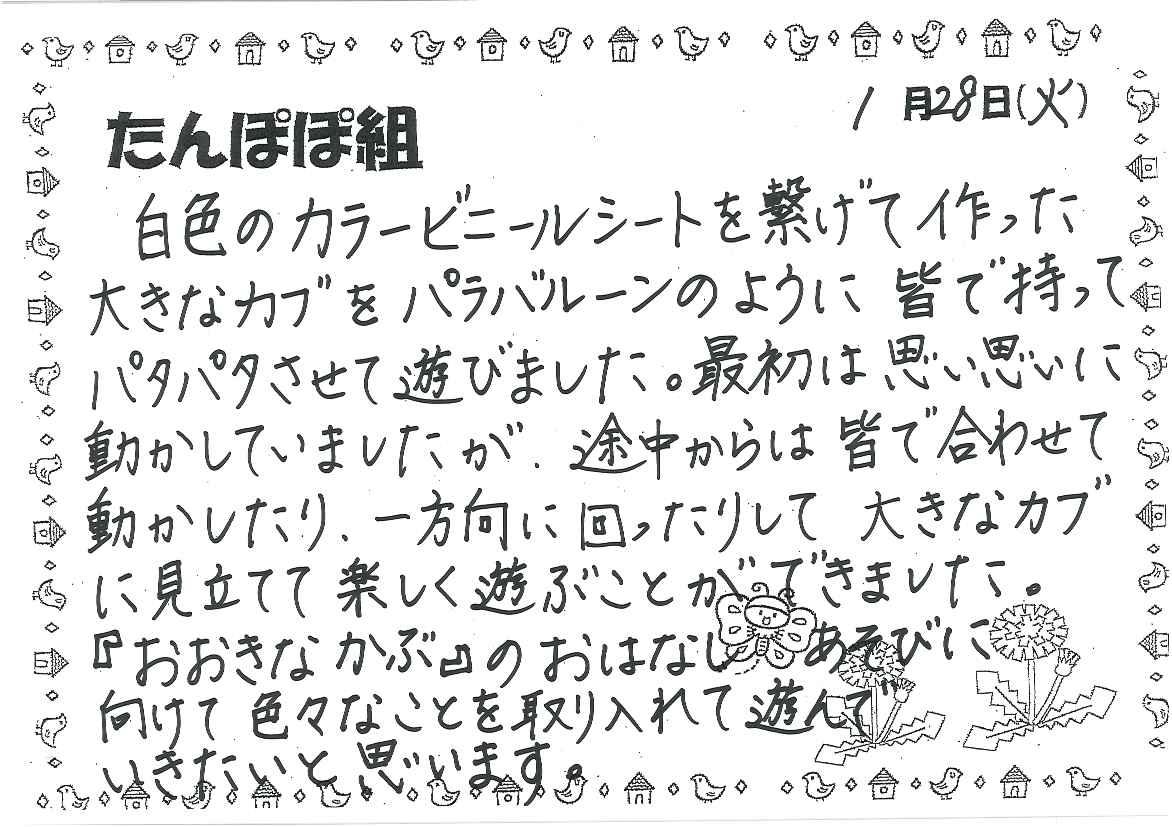 1月28日(火)
たんぽぽ組
白色のカラービニールシートを繋げて作った
大きなカブをパラバルーンのように皆で持って
パタパタさせて遊びました。最初は思い思いに
動かしていましたが、途中からは皆で合わせて
動かしたり、一方向に回ったりして大きなカブ
に見立てて楽しく遊ぶことができました。
『おおきなかぶ』のおはなしあそびに
向けて色々なことを取り入れて遊んで
いきたいと思います。